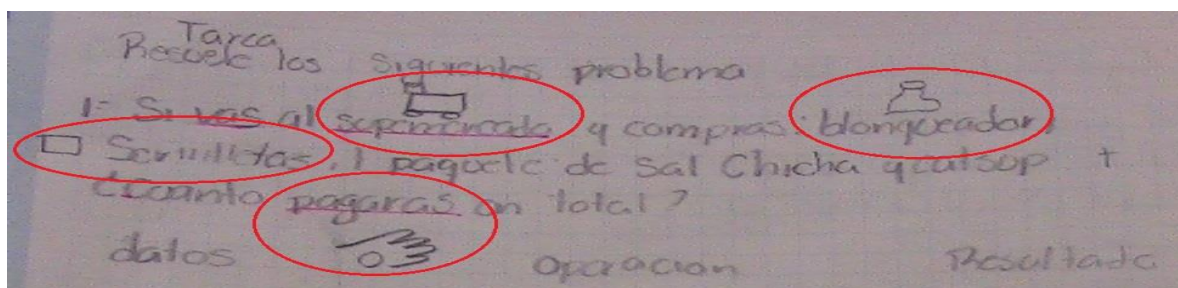 Tarea
Resuele los siguientes problema
1- Si vas al supermercado y compras: blonqueador,
Servilletas, 1 paquete de Sal Chicha y catsop +
¿Cuanto pagaras en total?
datos operacion Resultado